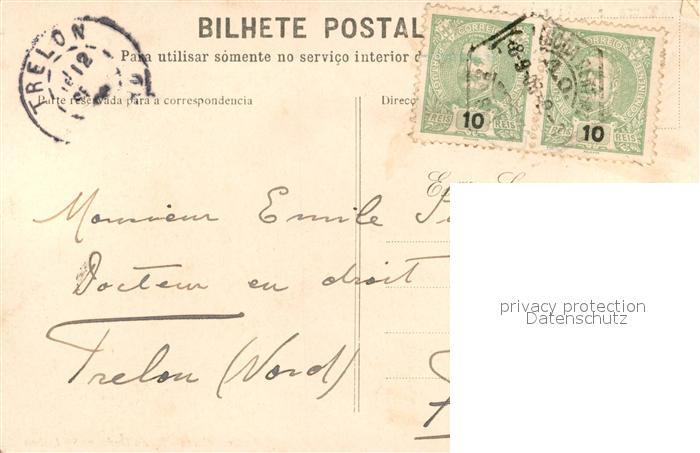 BILHETE POSTAL
Para utilisar sómente no serviço interior
TRELON
12
Parte reservada para a correspondencia
Direc
CORREIOS
10 REIS
CORREIOS
10 REIS
Monsieur Emile
Docteur en droit
Trelon (Nord)
privacy protection
Datenschutz